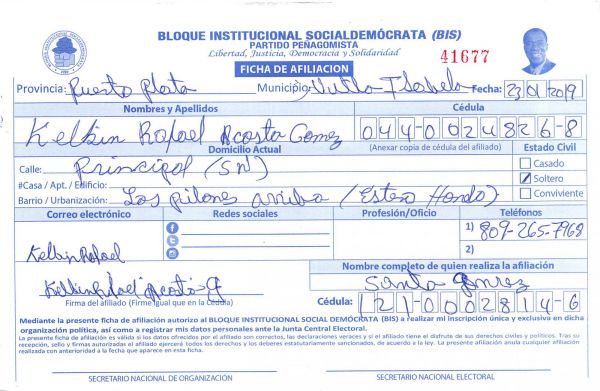 BLOQUE INSTITUCIONAL SOCIALDEMÓCRATA (BIS)
PARTIDO PEÑAGOMISTA
Libertad, Justicia, Democracia y Solidaridad
41677
FICHA DE AFILIACION
Provincia: Puerto Plata Municipio: Villa Isabela Fecha: 23 01 2019
Nombres y Apellidos Cédula
Kelbin Rafael Acosta Gomez 044-0024826-8
Domicilio Actual (Anexar copia de cédula del afiliado) Estado Civil
Calle: Principal (SN) Casado
#Casa / Apt. / Edificio: Soltero
Barrio / Urbanización: Los pilones arriba (Estero Hondo) Conviviente
Correo electrónico Redes sociales Profesión/Oficio Teléfonos
1) 809-265-7968
2)
Kelbin Rafael
Nombre completo de quien realiza la afiliación
Kelbin Rafael Acosta G
Firma del afiliado (Firme igual que en la Cédula)
Cédula: 121-0002814-6
Mediante la presente ficha de afiliación autorizo al BLOQUE INSTITUCIONAL SOCIAL DEMÓCRATA (BIS) a realizar mi inscripción única y exclusiva en dicha
organización política, así como a registrar mis datos personales ante la Junta Central Electoral.
La presente ficha de afiliación es válida si los datos ofrecidos por el afiliado son correctos, las declaraciones veraces y si el afiliado tiene el disfrute de sus derechos civiles y políticos. Tras su
recepción, sello y firmas autorizadas el afiliado ejercerá todos los derechos y los deberes estatutariamente sancionados, de acuerdo a la ley. La presente afiliación anula cualquier afiliación
realizada con anterioridad a la fecha que aparece en esta ficha.
SECRETARIO NACIONAL DE ORGANIZACIÓN SECRETARIO NACIONAL ELECTORAL